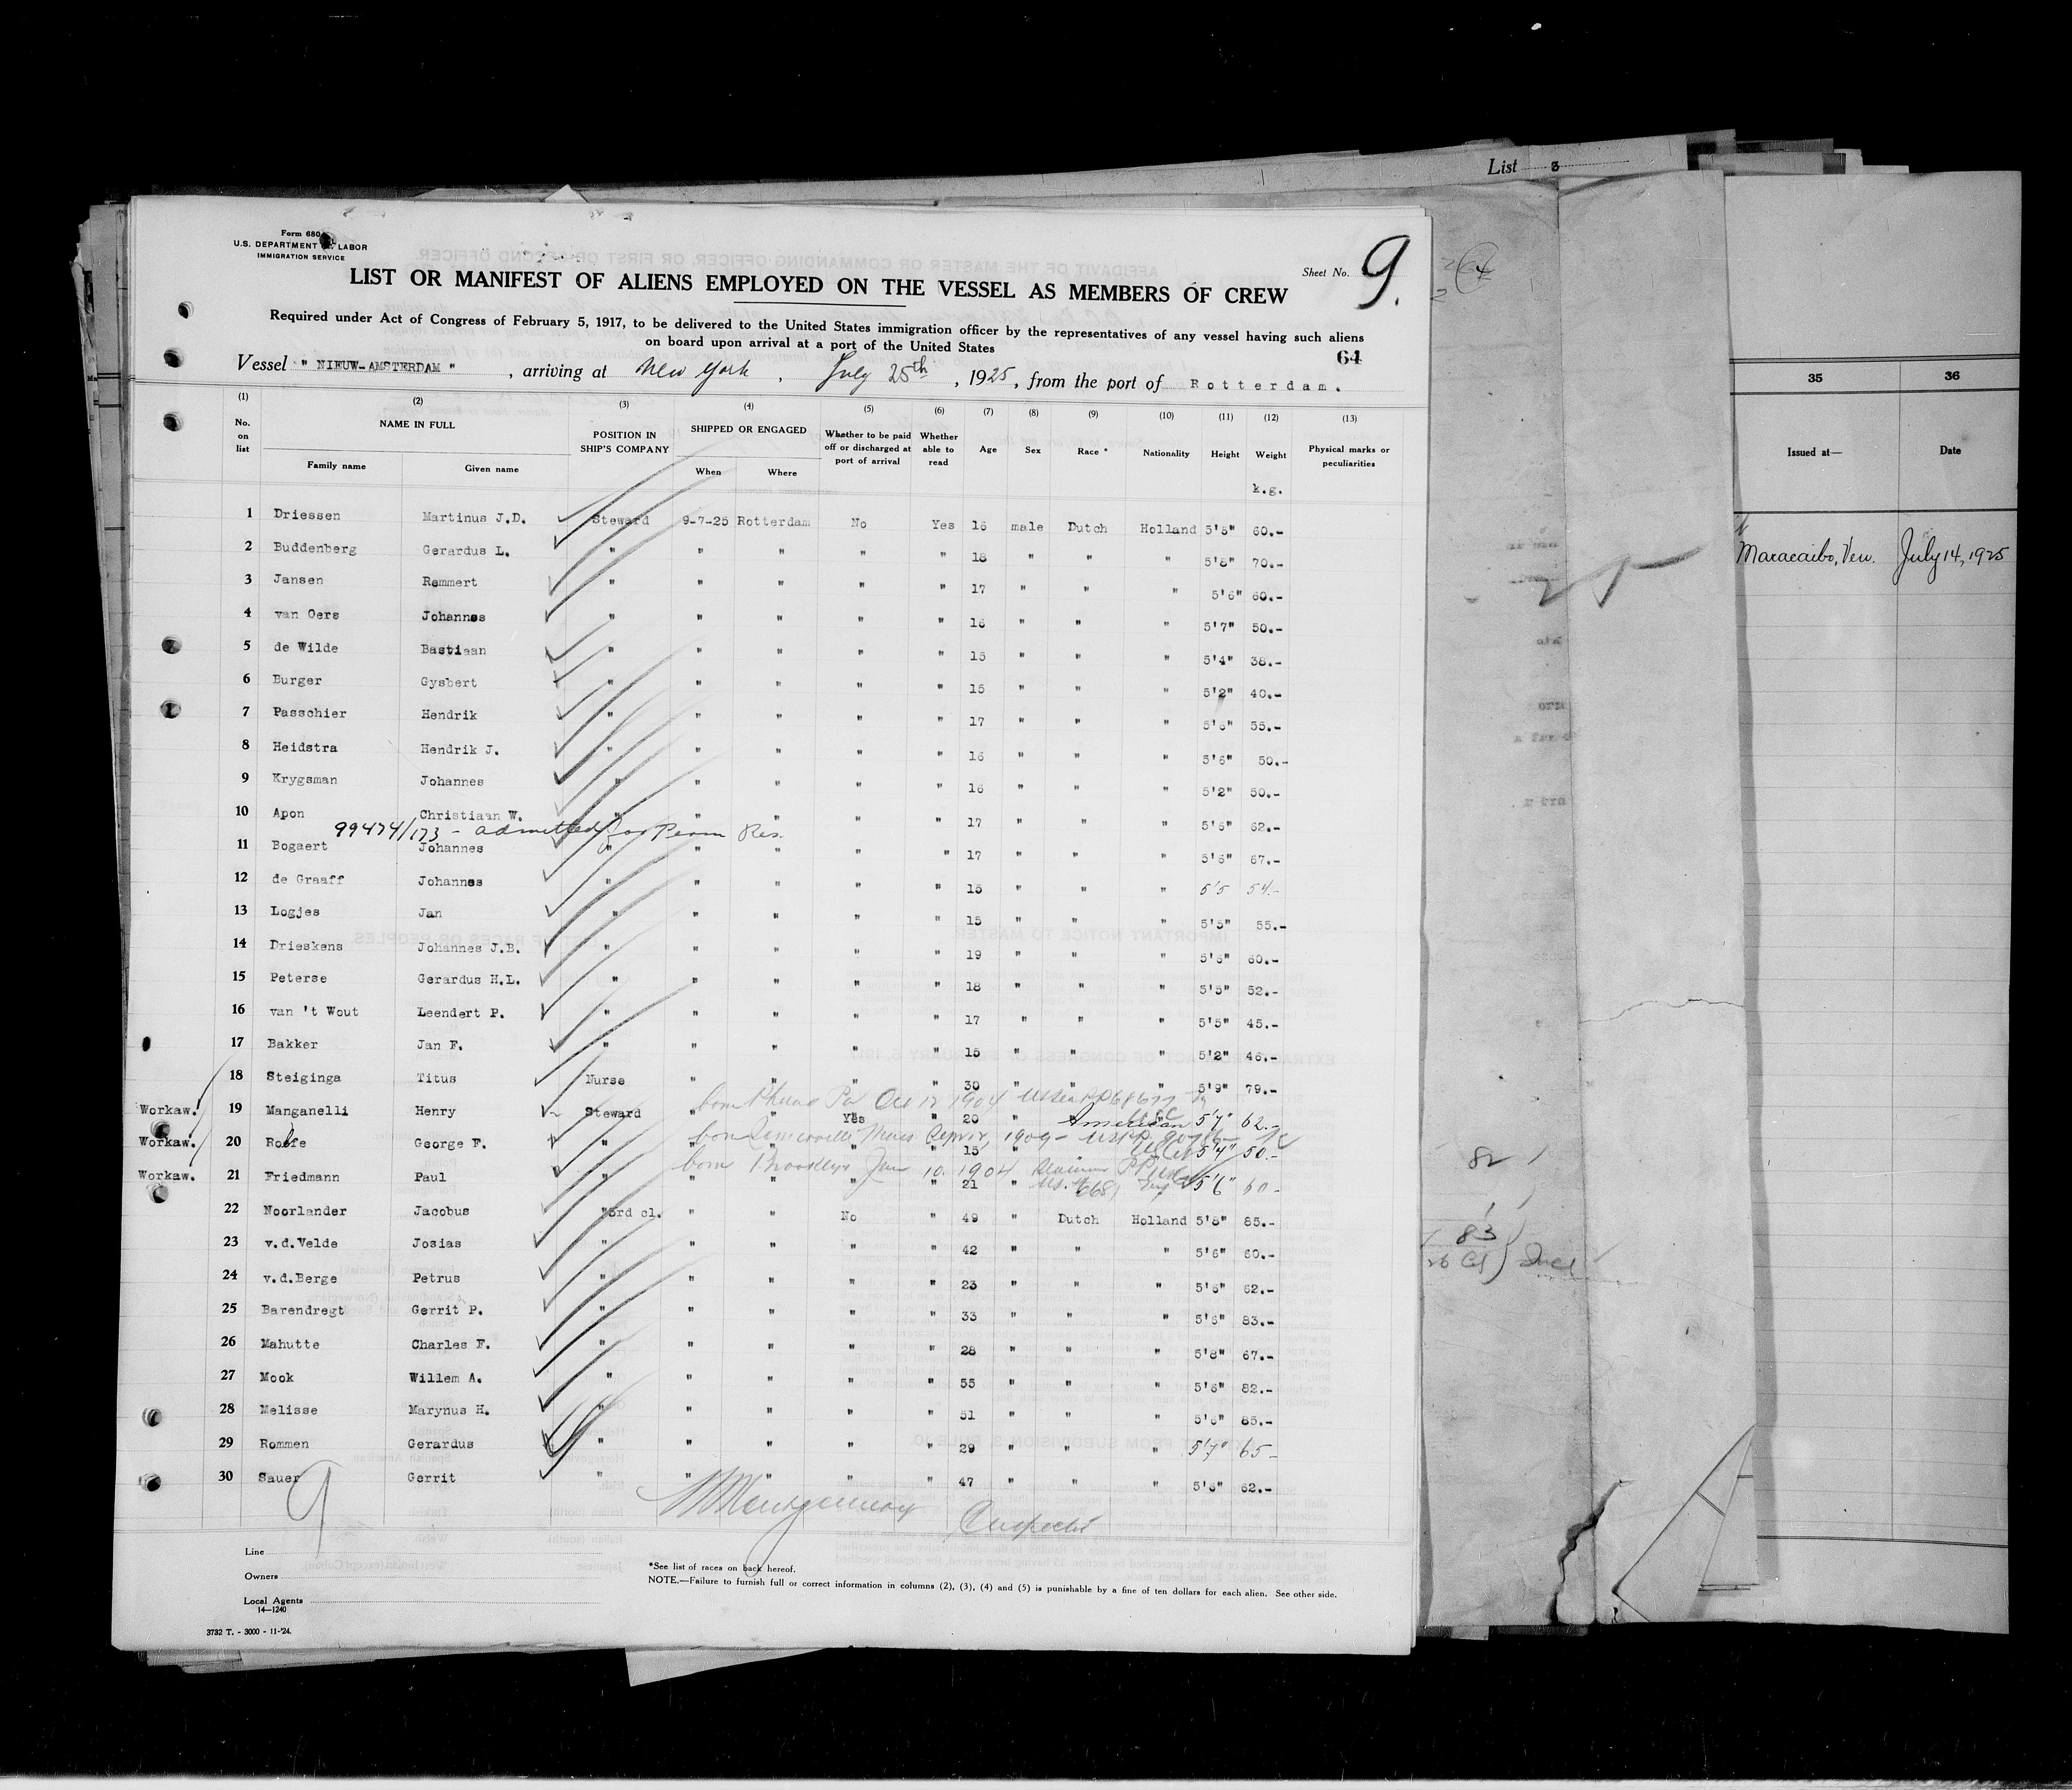 List 3
Form 680
U.S. DEPARTMENT OF LABOR
IMMIGRATION SERVICE
Sheet No. 9.
LIST OR MANIFEST OF ALIENS EMPLOYED ON THE VESSEL AS MEMBERS OF CREW
Required under Act of Congress of February 5, 1917, to be delivered to the United States immigration officer by the representatives of any vessel having such aliens
on board upon arrival at a port of the United States
64
Vessel " NIEUW-AMSTERDAM " , arriving at New York , July 25th , 1925, from the port of Rotterdam.
(1) (2) (3) (4) (5) (6) (7) (8) (9) (10) (11) (12) (13)
No. on list NAME IN FULL Family name Given name POSITION IN SHIP'S COMPANY SHIPPED OR ENGAGED When Where Whether to be paid off or discharged at port of arrival Whether able to read Age Sex Race * Nationality Height Weight Physical marks or peculiarities
k.g.
1 Driessen Martinus J.D. Steward 9-7-25 Rotterdam No Yes 16 male Dutch Holland 5'5" 60.-
2 Buddenberg Gerardus L. " " " " " 18 " " " 5'8" 70.-
3 Jansen Remmert " " " " " 17 " " " 5'6" 60.-
4 van Oers Johannes " " " " " 16 " " " 5'7" 50.-
5 de Wilde Bastiaan " " " " " 15 " " " 5'4" 38.-
6 Burger Gysbert " " " " " 15 " " " 5'2" 40.-
7 Passchier Hendrik " " " " " 17 " " " 55.-
8 Heidstra Hendrik J. " " " " " 16 " " " 5'6" 50.-
9 Krygsman Johannes " " " " " 16 " " " 5'2" 50.-
10 Apon Christiaan W. " " " " " 17 " " " 5'6" 62.-
99474/173 - admitted for Perm Res.
11 Bogaert Johannes " " " " " 17 " " " 5'6" 67.-
12 de Graaff Johannes " " " " " 15 " " " 5'5 54.-
13 Logjes Jan " " " " " 15 " " " 5'5" 55.-
14 Drieskens Johannes J.B. " " " " " 19 " " " 60.-
15 Peterse Gerardus H.L. " " " " " 18 " " " 5'5" 52.-
16 van 't Wout Leendert P. " " " " " 17 " " " 5'5" 45.-
17 Bakker Jan F. " " " " " 15 " " " 5'2" 46.-
18 Steiginga Titus Nurse " " " " 30 " " " 5'9" 79.-
born Phila Pa Oct 17 1904
Workaw. 19 Manganelli Henry Steward " " Yes " 20 " American USC 5'7" 62.-
born Somerville Mass 1909
Workaw. 20 Rolfe George F. " " " " " 15 " 5'4" 50.-
born Brooklyn Jan 10. 1904
Workaw. 21 Friedmann Paul " " " " " 21 " 5'6" 60-
22 Noorlander Jacobus "3rd cl. " " No " 49 " Dutch Holland 5'8" 85.-
23 v.d.Velde Josias " " " " " 42 " " " 5'6" 60.-
24 v.d.Berge Petrus " " " " " 23 " " " 5'6" 62.-
25 Barendregt Gerrit P. " " " " " 33 " " " 5'6" 83.-
26 Mahutte Charles F. " " " " " 28 " " " 5'8" 67.-
27 Mook Willem A. " " " " " 55 " " " 5'6" 82.-
28 Melisse Marynus H. " " " " " 51 " " " 5'6" 85.-
29 Rommen Gerardus " " " " " 29 " " " 5'7" 65-
30 Sauer Gerrit " " " " " 47 " " " 5'6" 62.-
9
Montgomery Inspector
Line
Owners
Local Agents
14—1240
*See list of races on back hereof.
NOTE.—Failure to furnish full or correct information in columns (2), (3), (4) and (5) is punishable by a fine of ten dollars for each alien. See other side.
3732 T. - 3000 - 11-'24.
82
83
35 36
Issued at— Date
Maracaibo, Ven. July 14, 1925